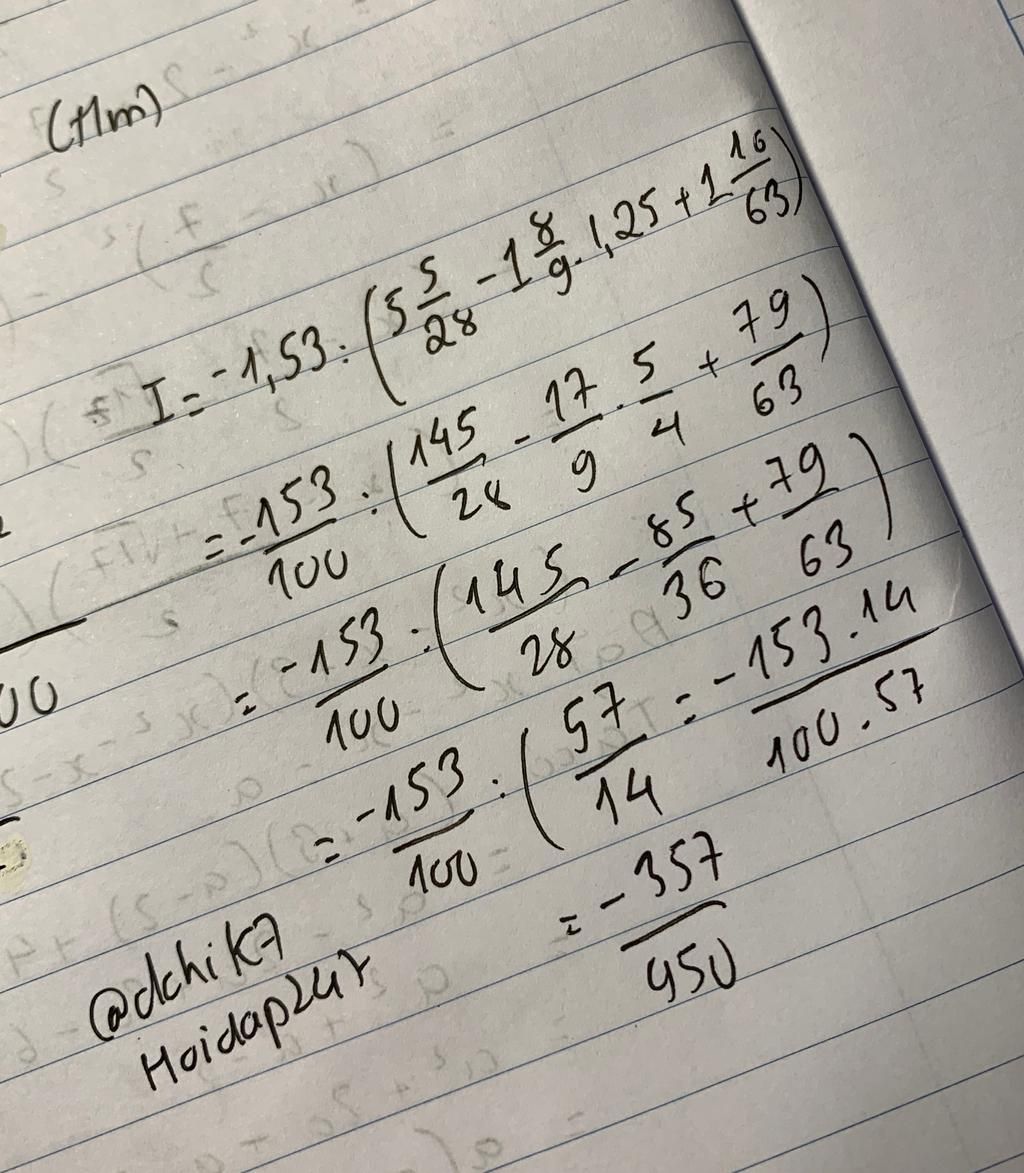 (tlm)
I = -1,53 : (5 5/28 - 1 8/9 . 1,25 + 1 16/63)
= -153/100 : (145/28 - 17/9 . 5/4 + 79/63)
= -153/100 : (145/28 - 85/36 + 79/63)
= -153/100 : (57/14 = -153.14/100.57
= -357/950
@dchik7
Hoidap247
00